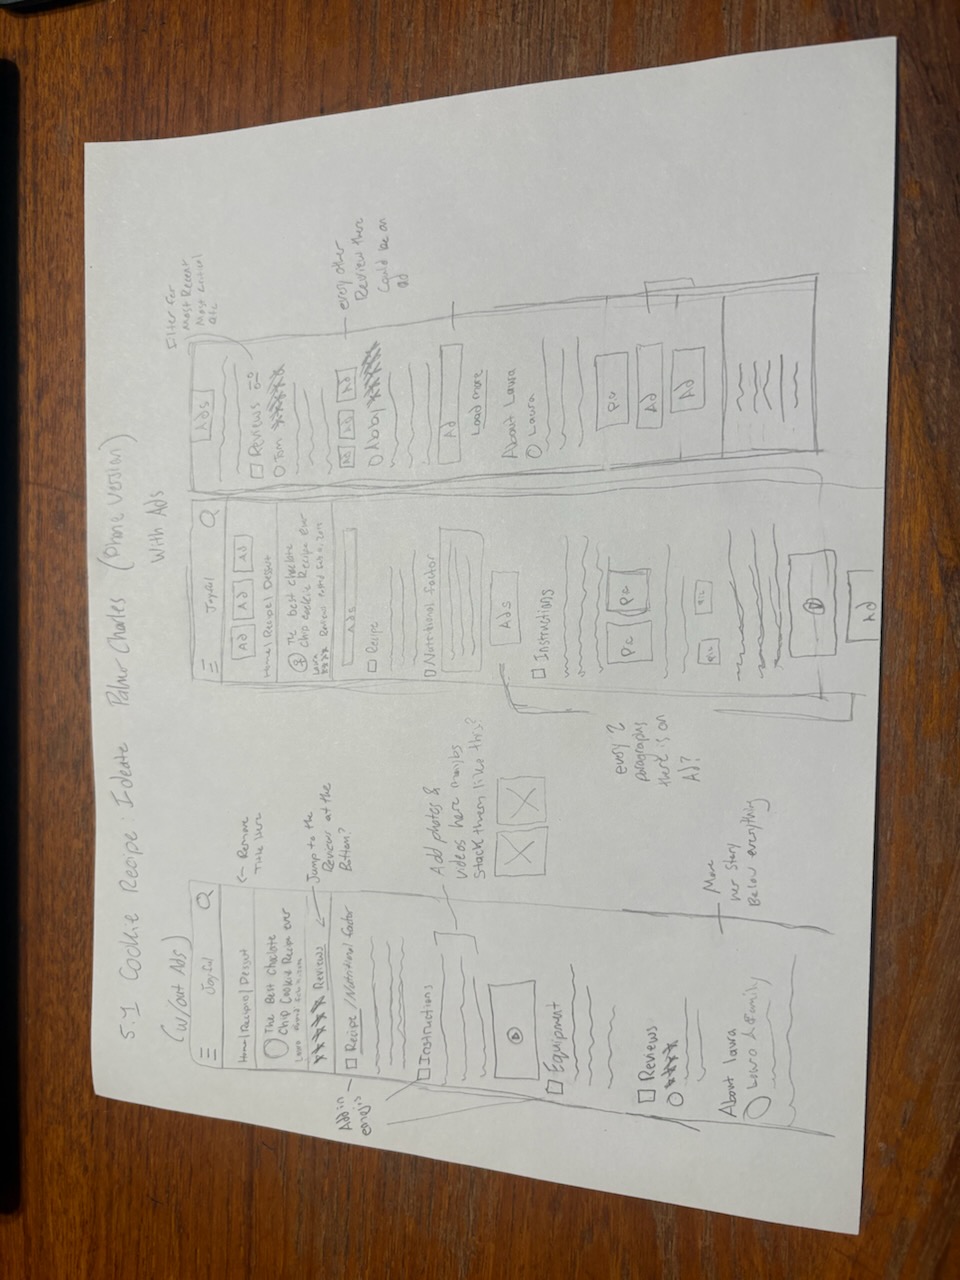 5.1 Cookie Recipe: Ideate Palmer Charles (Phone Version)
(w/out Ads)
With Ads
Joyful
Home | Recipie | Dessert
The Best Choclate
Chip Cookie Recipe ever
Reviews
Recipe / Nutritional factor
Instructions
Equipment
Reviews
About Laura
Laura & Family
Add in
emojis
<- Remove
Title Here
Jump to the
Reviews at the
Bottom?
Add photos &
videos here maybe
Stack them like this?
Move
her Story
Below everything
Joyful
Ad Ad Ad
Home | Recipe | Dessert
The best choclate
Chip Cookie Recipe ever
Laura
Reviews
Ads
Recipe
Nutritional factor
Ads
Instructions
Pic Pic
Pic Pic
Ad
every 2
paragraphs
there is an
Ad?
Ads
Reviews
Tom
Ad Ad Ad
Abby
Ad
Load more
About Laura
Laura
Pic
Ad
Ad
Filter For
Most Recent
Most Critical
etc
every other
Review there
Could be an
ad